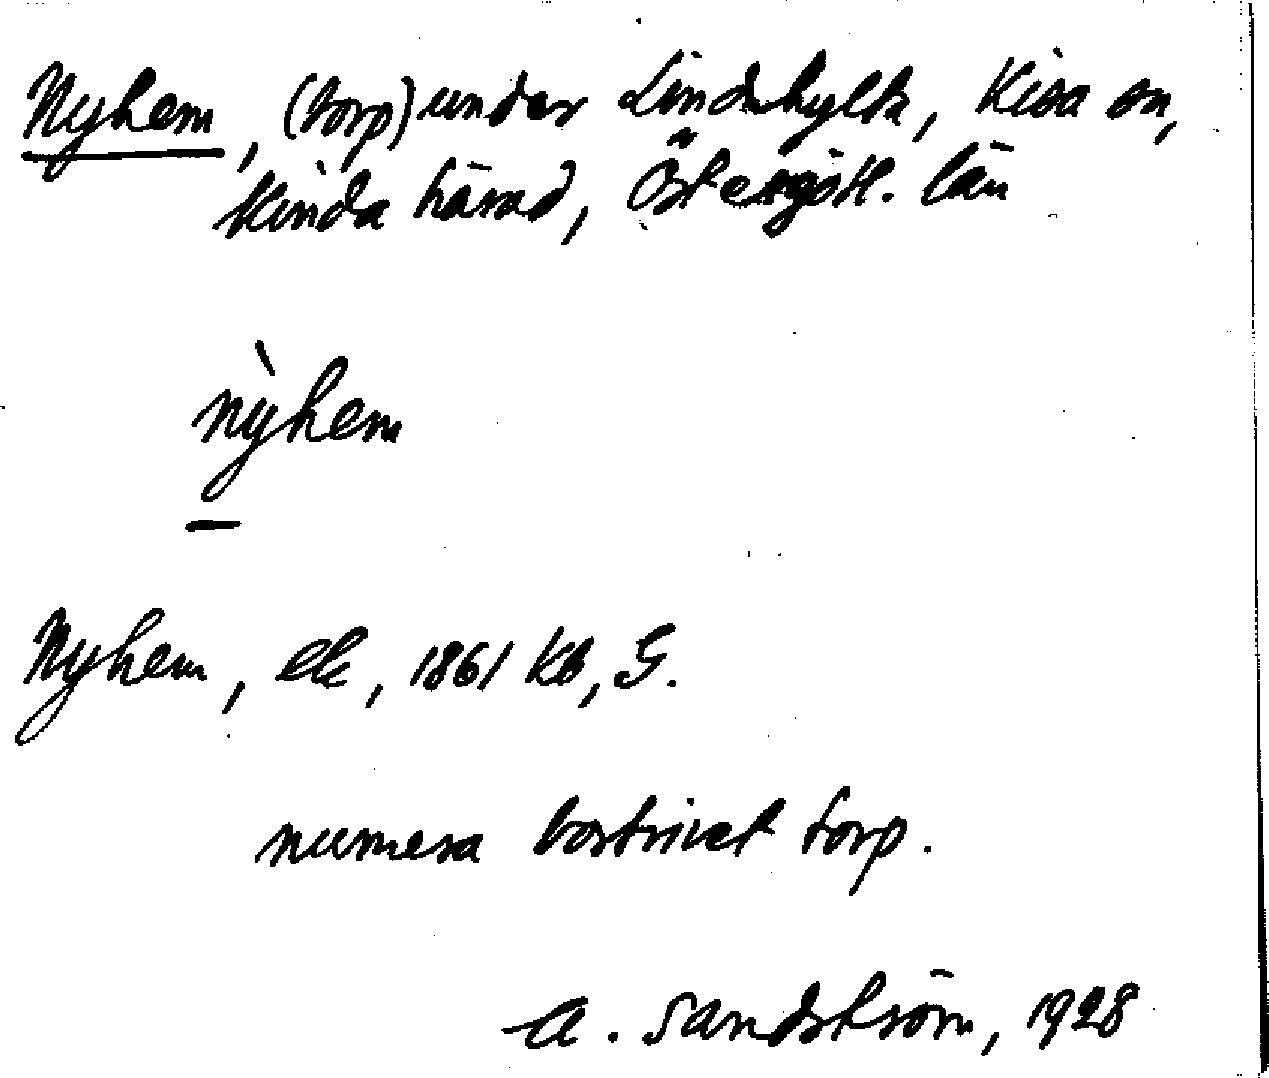 Nyhem, (torp) under Lindhylta, Kisa sn,
Kinda härad, Östergötl. län
nỳhem
Nyhem, 1861 Kb, G.
numera bortrivet torp.
A. Sandström, 1928